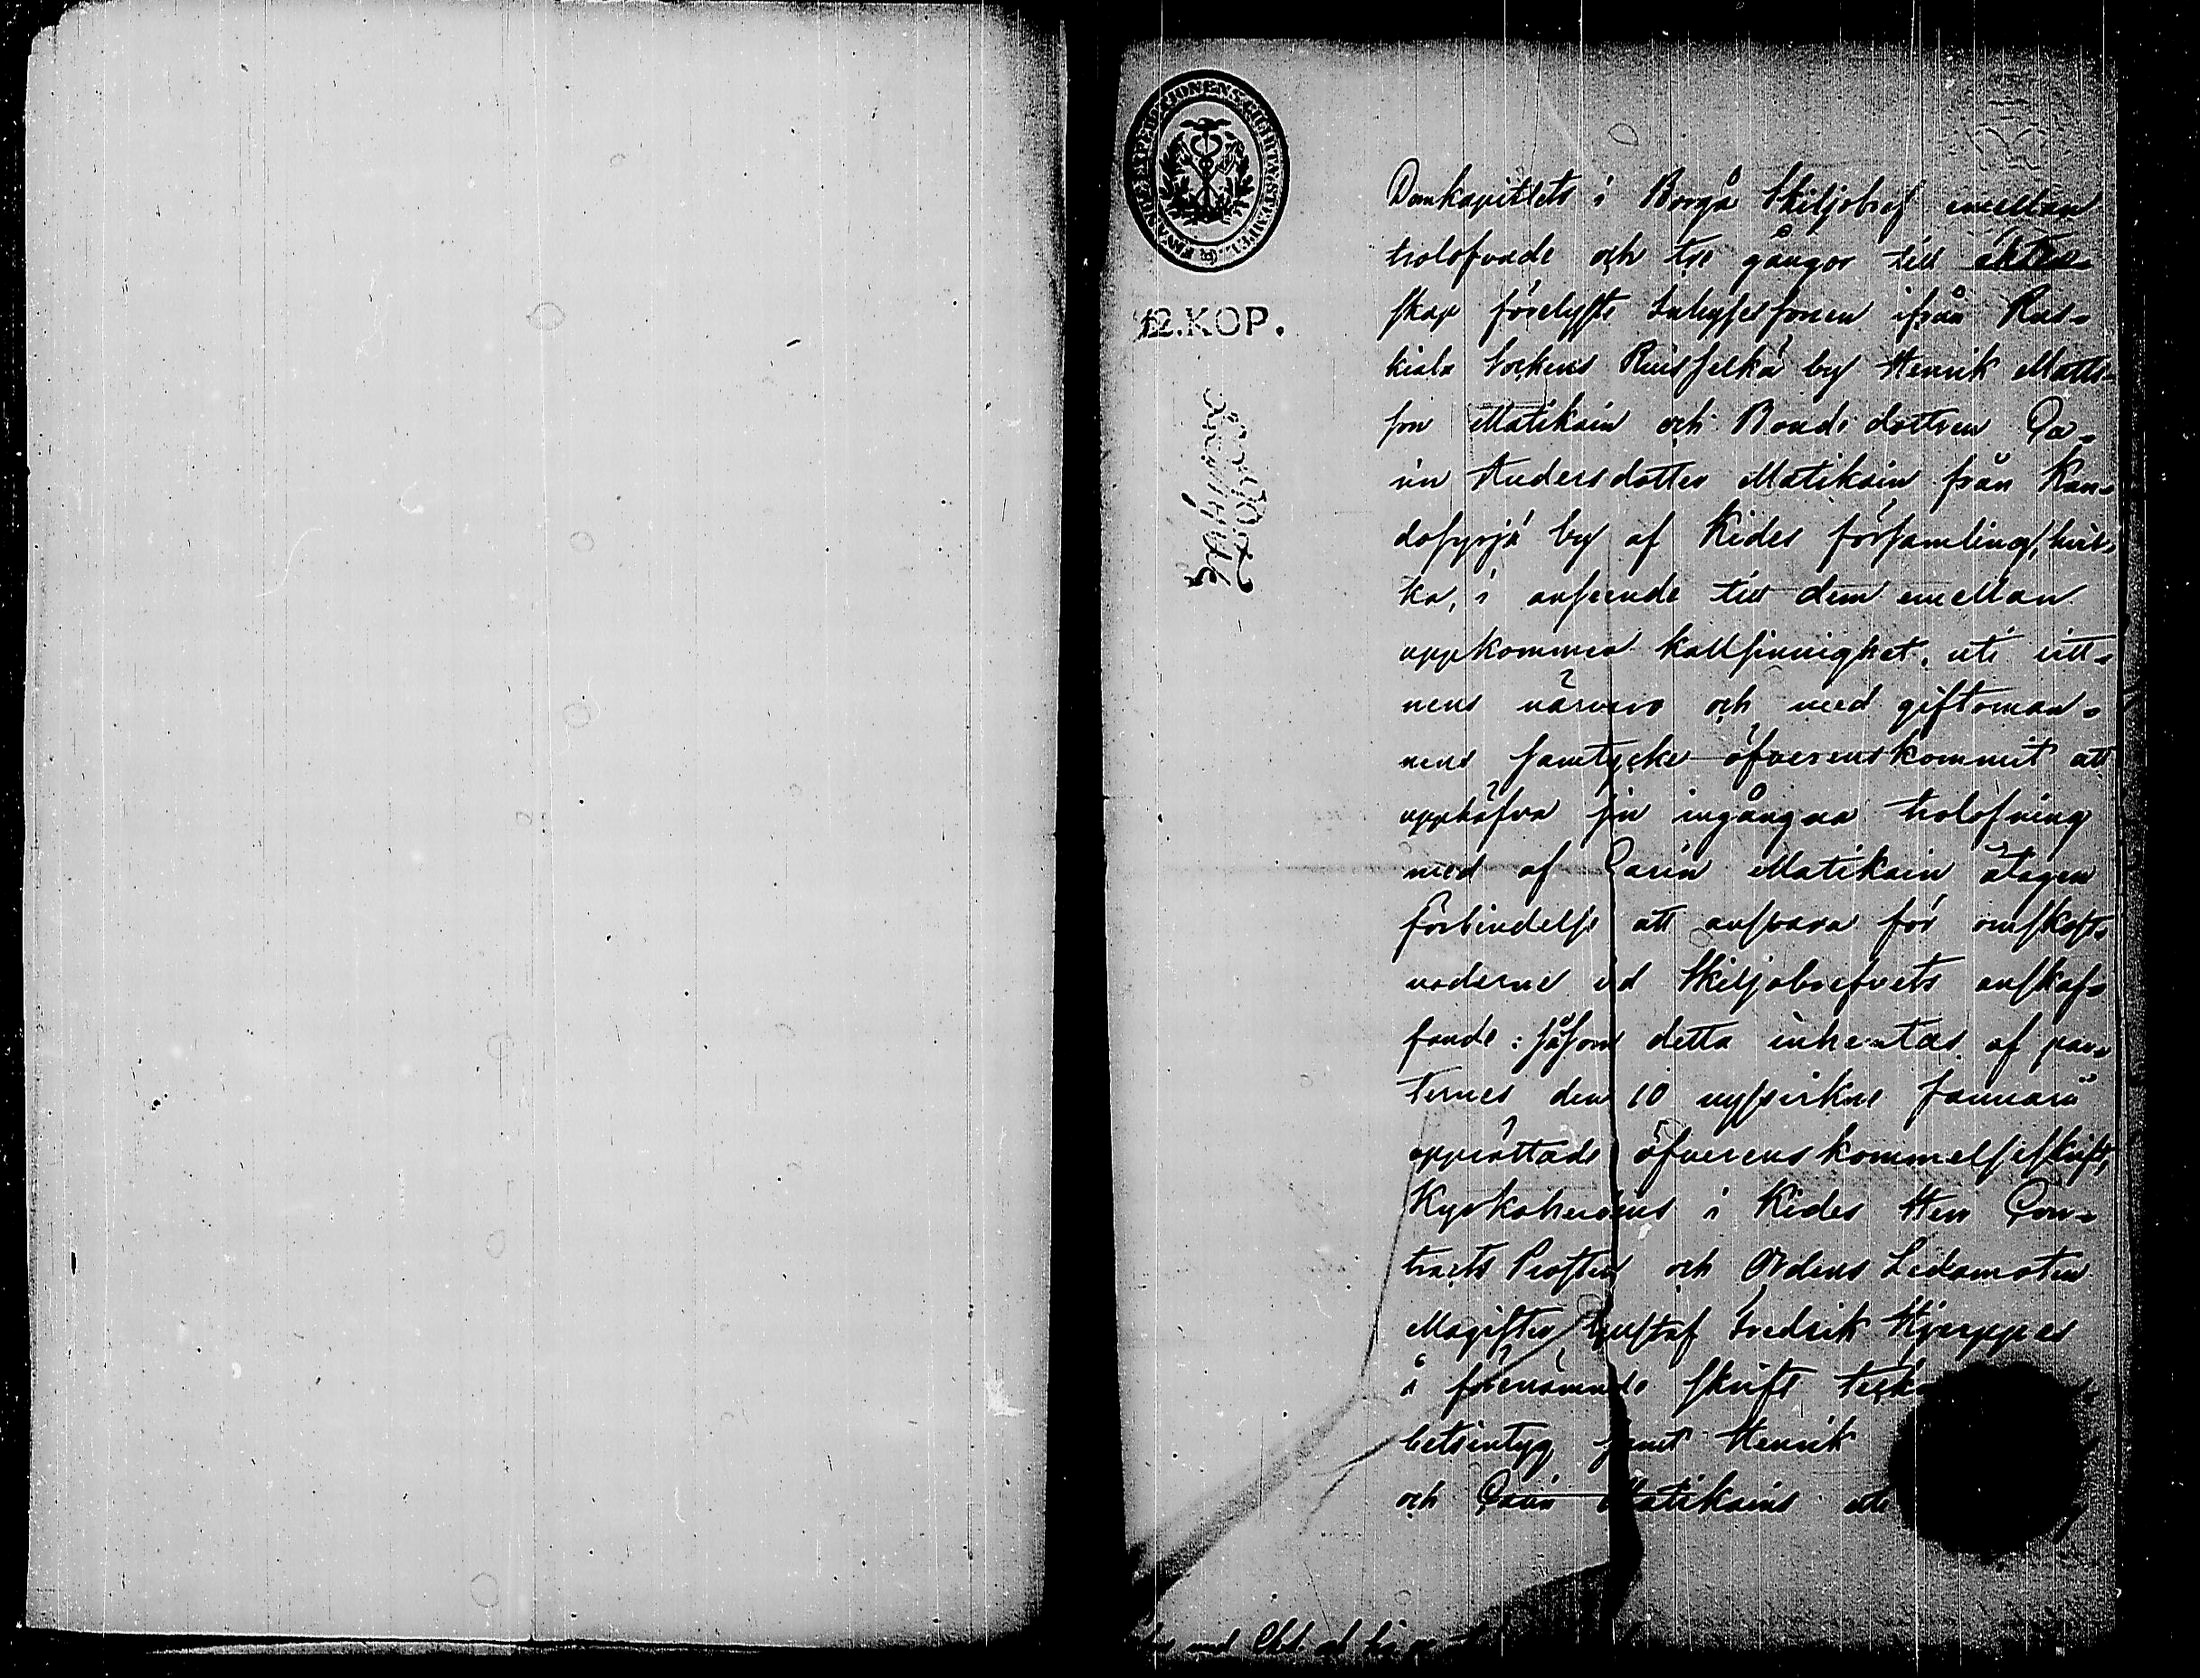 12.KOP.
Domkapitlets i Borgå Skiljobref emellan
trolofvade och tre gånger till äkten-
skap förelyste Inhysessonen ifrån Rus-
kiala Sockens Ruisselkä by Henrik Matts-
son Matikain och Bondedottren Ca-
rin Andersdotter Matikain från Kan-
dosyrjä by af Kides församling, hvil-
ka, i anseende till dem emellan
uppkommen kallsinnighet, uti vitt-
nens närvaro och med giftoman-
nens samtycke öfverenskommit att
upphäfva sin ingångna trolofning
med af Carin Matikain åtagen
förbindelse att ansvara för omkost-
naderne vid Skiljobrefvets anskaf-
fande: såsom detta inhemtas af par-
ternes den 10 nyssvikne Januari
upprättade öfverenskommelseskrift,
Kyrkoherdens i Kides Herr Con-
tracts Prosten och Ordens Ledamoten
Magister Gustaf Fredrik
å förenämnde skrift
betsintyg samt Henrik
och Carin Matikains uti